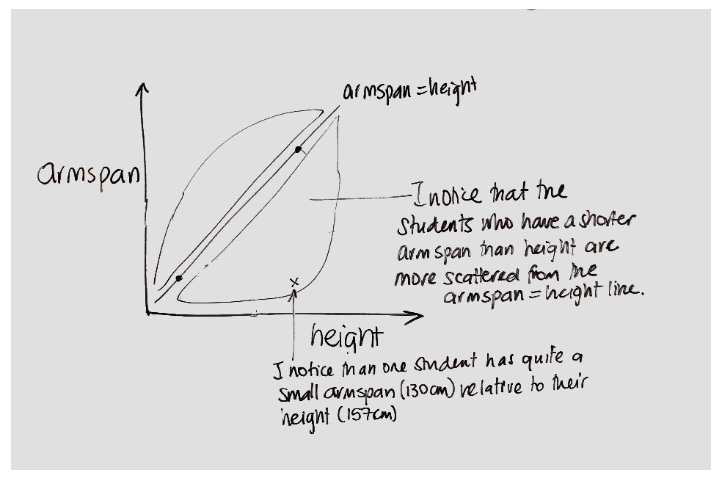 armspan = height
armspan
I notice that the
students who have a shorter
armspan than height are
more scattered from the
armspan = height line.
height
I notice than one student has quite a
small armspan (130cm) relative to their
height (157cm)